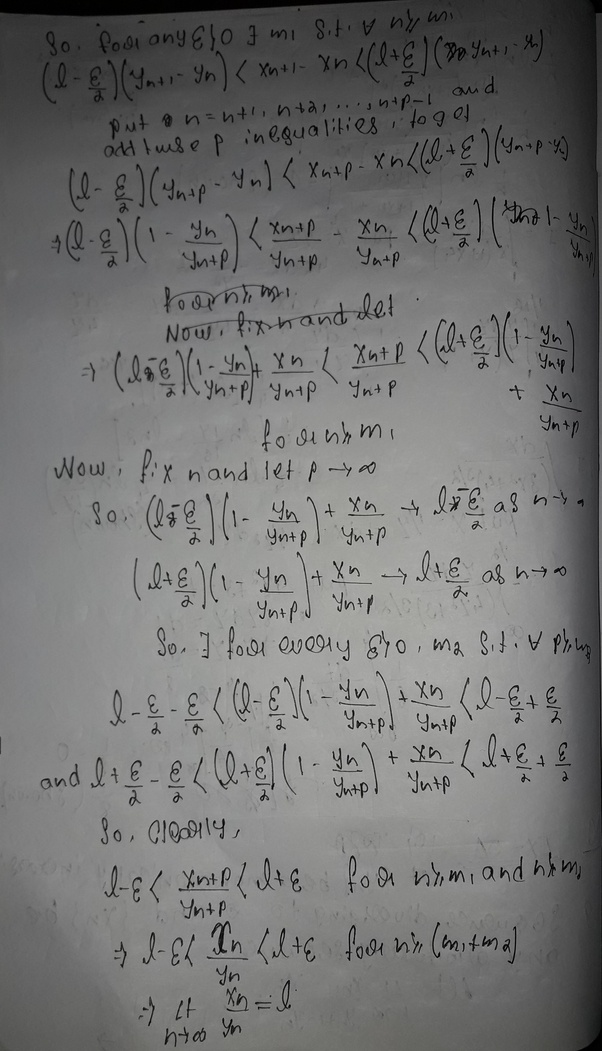 So, for any ε>0, ∃ m₁ s.t. ∀ n≥m₁
(l - ε/2)(y_{n+1} - y_n) < x_{n+1} - x_n < (l + ε/2)(y_{n+1} - y_n)
put n = n+1, n+2, ..., n+p-1 and
add these p inequalities, to get
(l - ε/2)(y_{n+p} - y_n) < x_{n+p} - x_n < (l + ε/2)(y_{n+p} - y_n)
⇒ (l - ε/2)(1 - y_n/y_{n+p}) < x_{n+p}/y_{n+p} - x_n/y_{n+p} < (l + ε/2)(1 - y_n/y_{n+p})
for n≥m₁
Now, fix n and let
⇒ (l - ε/2)(1 - y_n/y_{n+p}) + x_n/y_{n+p} < x_{n+p}/y_{n+p} < (l + ε/2)(1 - y_n/y_{n+p})
+ x_n/y_{n+p}
for n≥m₁
Now, fix n and let p → ∞
So, (l - ε/2)(1 - y_n/y_{n+p}) + x_n/y_{n+p} → l - ε/2 as n →
(l + ε/2)(1 - y_n/y_{n+p}) + x_n/y_{n+p} → l + ε/2 as n → ∞
So, ∃ for every ε>0, m₂ s.t. ∀ p≥m₂
l - ε/2 - ε/2 < (l - ε/2)(1 - y_n/y_{n+p}) + x_n/y_{n+p} < l - ε/2 + ε/2
and l + ε/2 - ε/2 < (l + ε/2)(1 - y_n/y_{n+p}) + x_n/y_{n+p} < l + ε/2 + ε/2
So, clearly,
l - ε < x_{n+p}/y_{n+p} < l + ε for n≥m₁ and n≥m
⇒ l - ε < x_n/y_n < l + ε for n≥(m₁+m₂)
⇒ lt n→∞ x_n/y_n = l